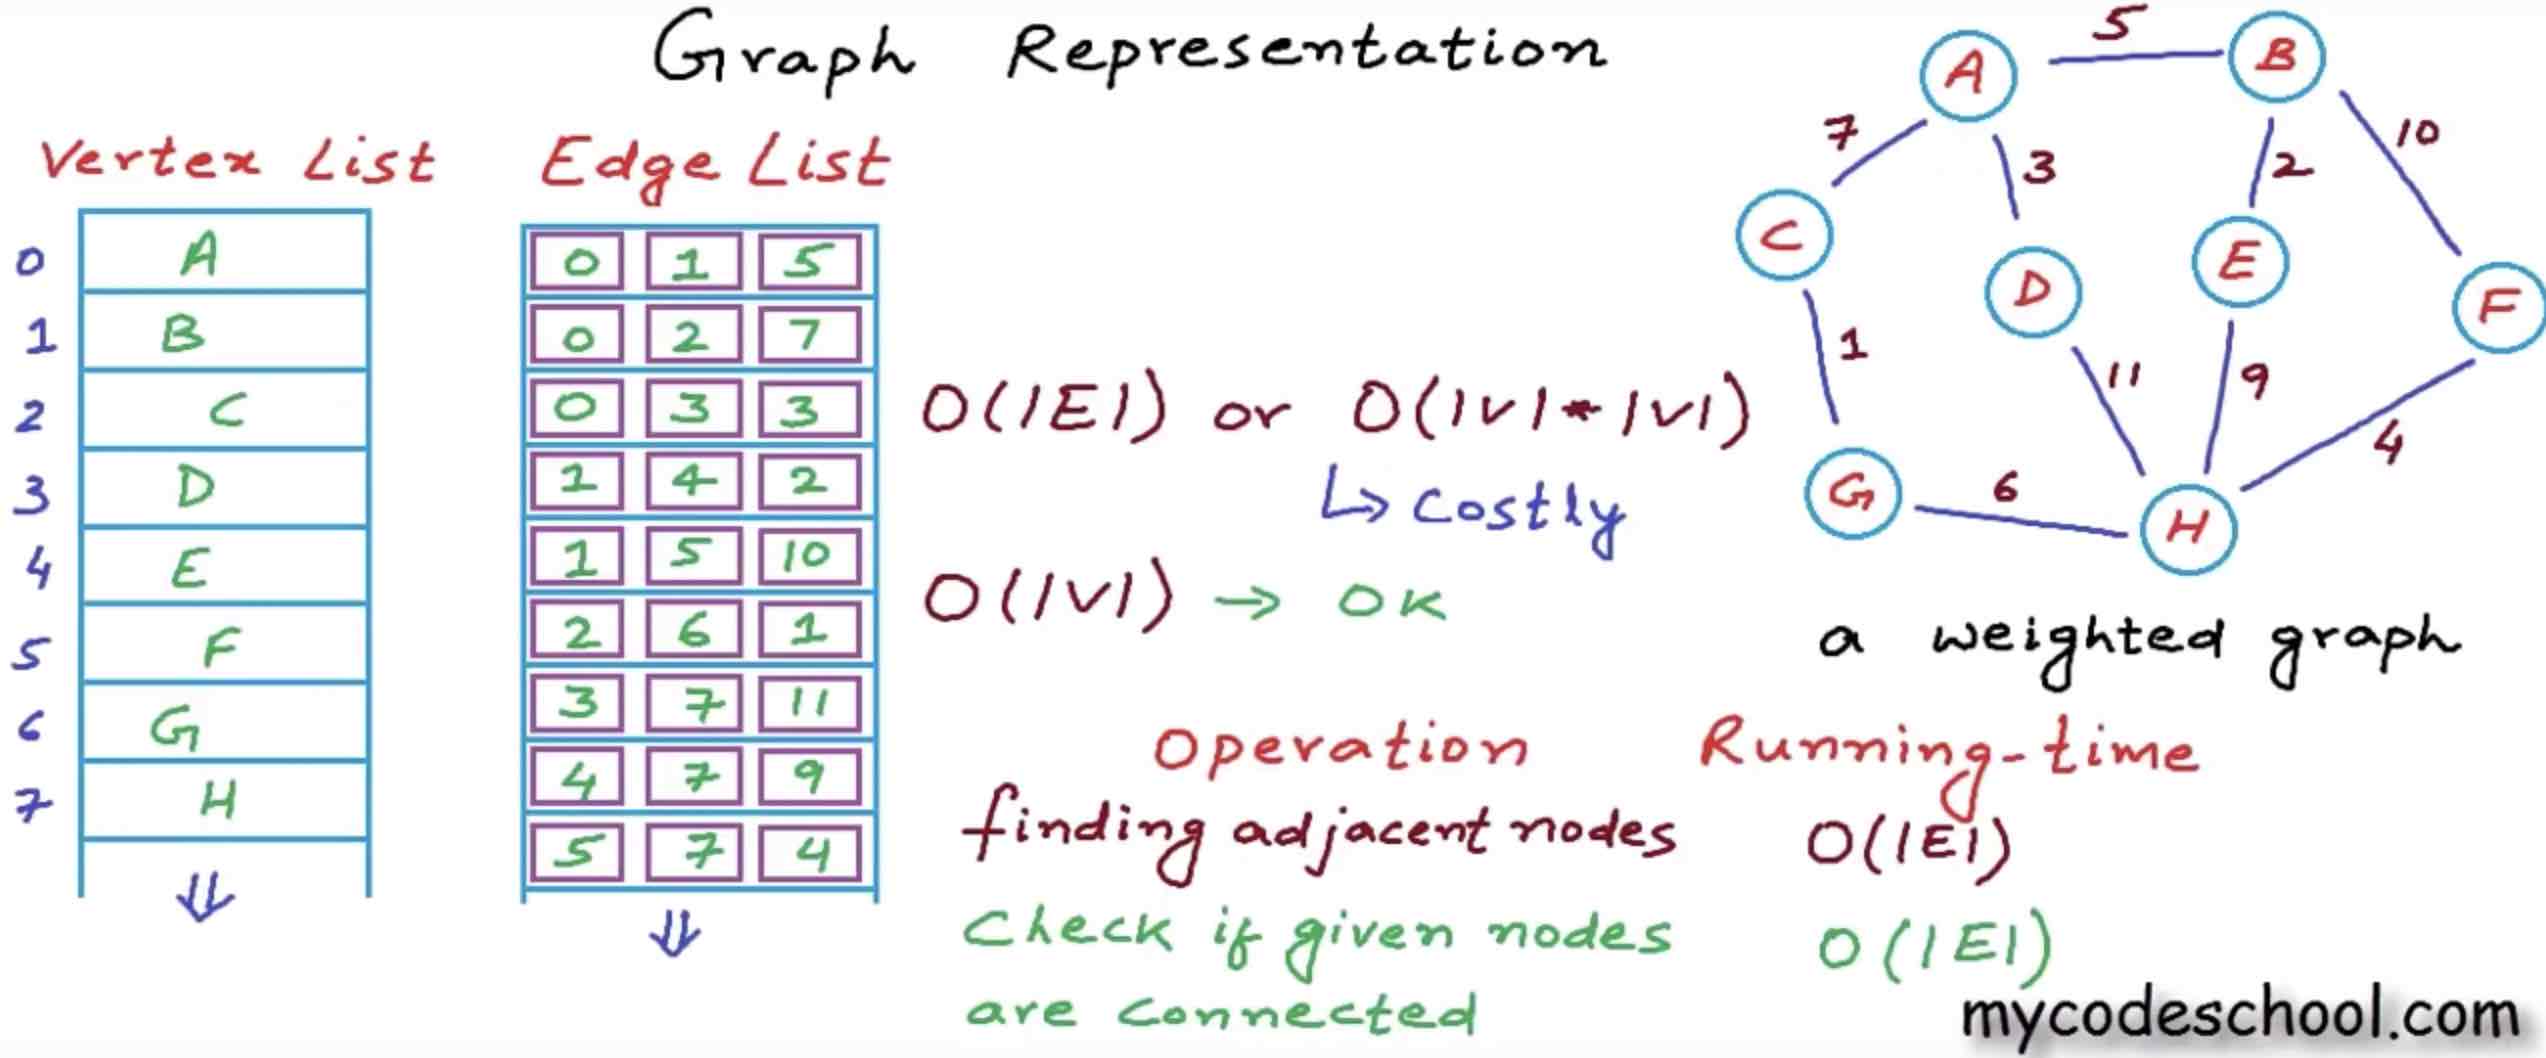 Graph Representation
Vertex List
0 A
1 B
2 C
3 D
4 E
5 F
6 G
7 H
Edge List
0 1 5
0 2 7
0 3 3
1 4 2
1 5 10
2 6 1
3 7 11
4 7 9
5 7 4
O(|E|) or O(|V| * |V|)
↳ costly
O(|V|) → OK
A
B
C
D
E
F
G
H
5
7
3
2
10
1
11
9
4
6
a weighted graph
Operation Running-time
finding adjacent nodes O(|E|)
Check if given nodes O(|E|)
are connected
mycodeschool.com